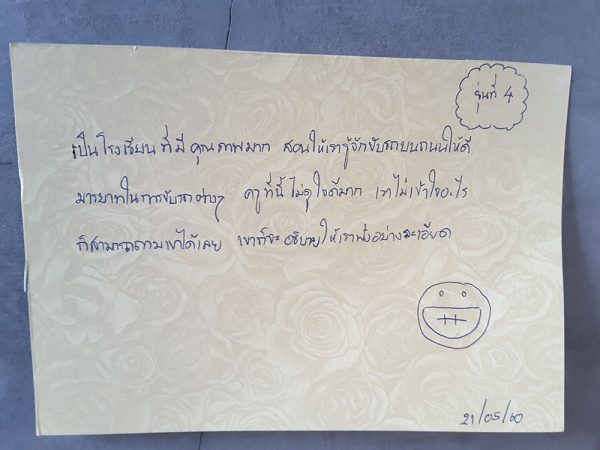 รุ่นที่ 4
เป็นโรงเรียนที่มีคุณภาพมาก สอนให้เรารู้จักขับรถบนถนนให้ดี
มารยาทในการขับรถต่างๆ ครูที่นี้ไม่ดุใจดีมาก เราไม่เข้าใจอะไร
ก็สามารถถามเขาได้เลย เขาก็จะอธิบายให้เราฟังอย่างละเอียด
21/05/60